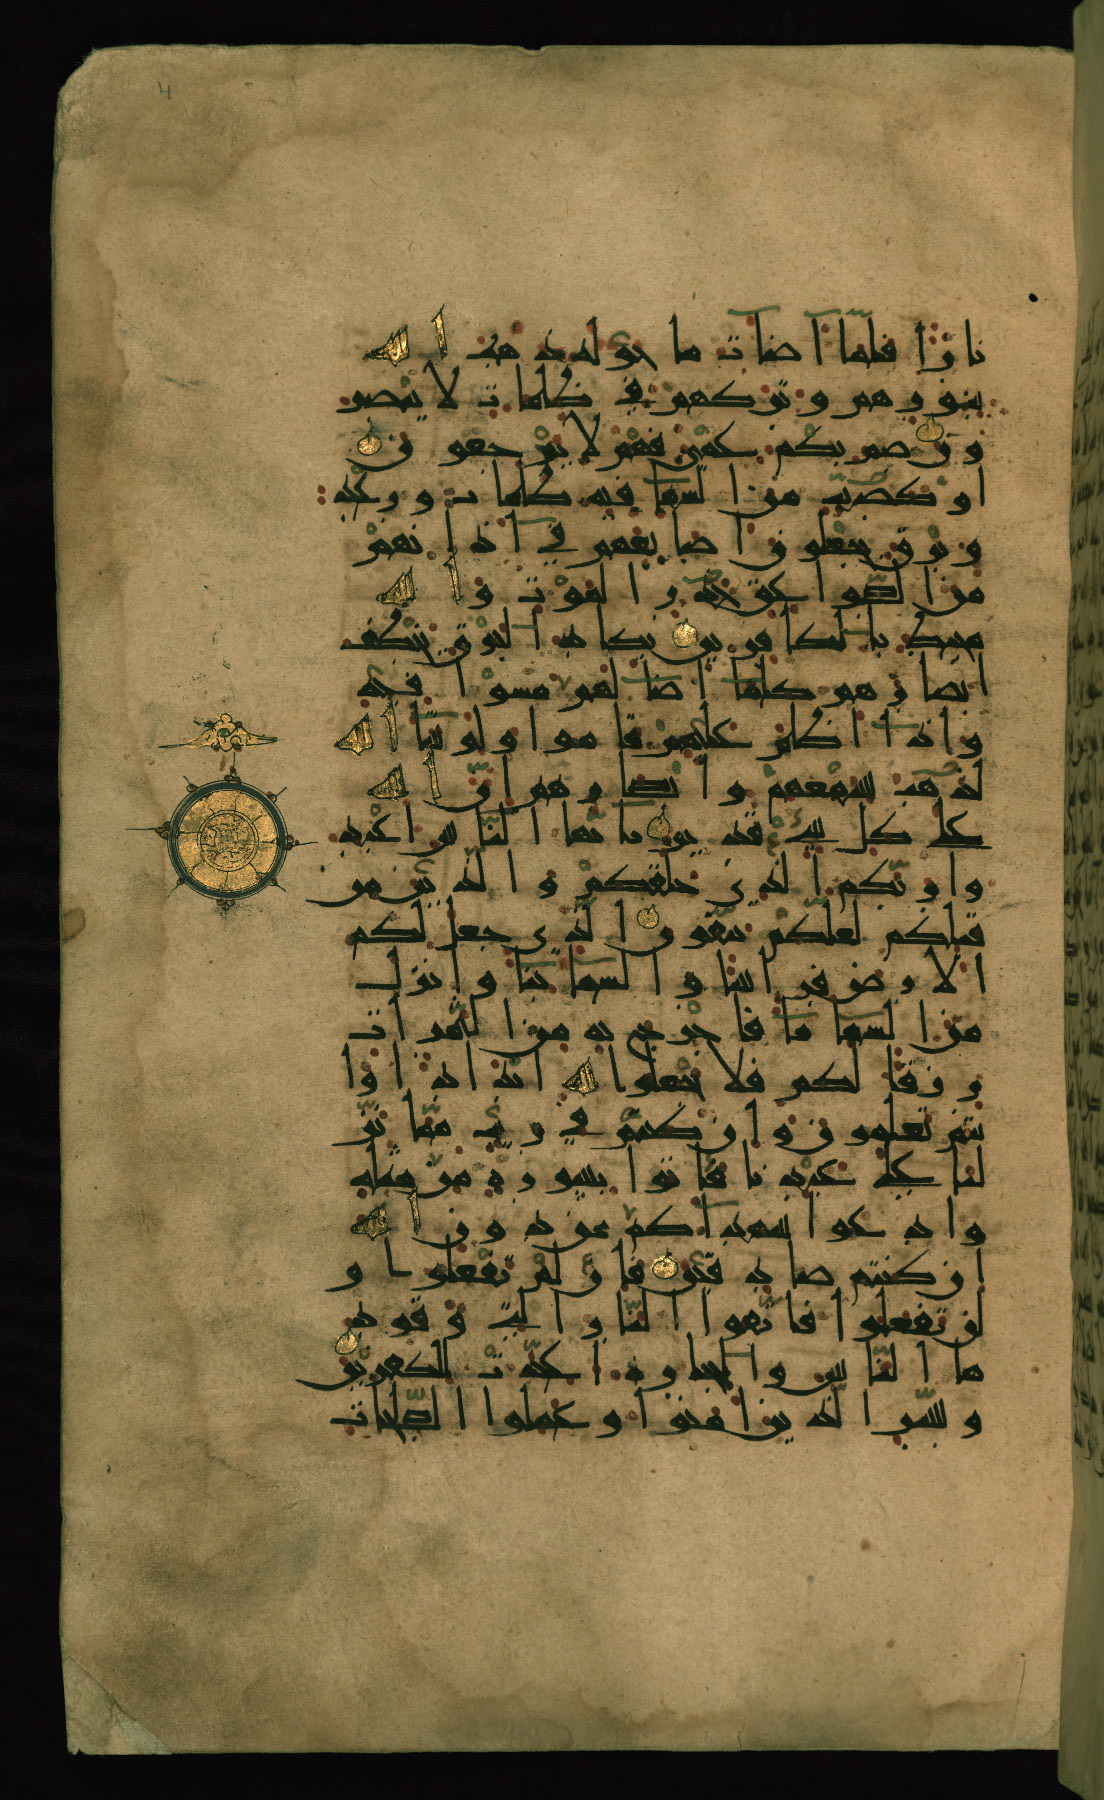 4
نارا فلما اضات ما حوله ذهب الله
بنورهم وتركهم في ظلمات لا يبصر
ون صم بكم عمي فهم لا يرجعون
او كصيب من السما فيه ظلمات ورعد
وبرق يجعلون اصابعهم في اذانهم
من الصواعق حذر الموت والله
محيط بالكافرين يكاد البرق يخطف
ابصارهم كلما اضا لهم مشوا فيه
واذا اظلم عليهم قاموا ولو شا الله
لذهب بسمعهم وابصارهم ان الله
على كل شي قدير يا ايها الناس اعبد
وا ربكم الذي خلقكم والذين من
قبلكم لعلكم تتقون الذي جعل لكم
الارض فراشا والسما بنا وانزل
من السما ما فاخرج به من الثمرات
رزقا لكم فلا تجعلوا لله اندادا وا
نتم تعلمون وان كنتم في ريب مما نز
لنا على عبدنا فاتوا بسورة من مثله
وادعوا شهداكم من دون الله
ان كنتم صادقين فان لم تفعلوا و
لن تفعلوا فاتقوا النار التي وقود
ها الناس والحجارة اعدت للكفرين
وبشر الذين امنوا وعملوا الصلحات